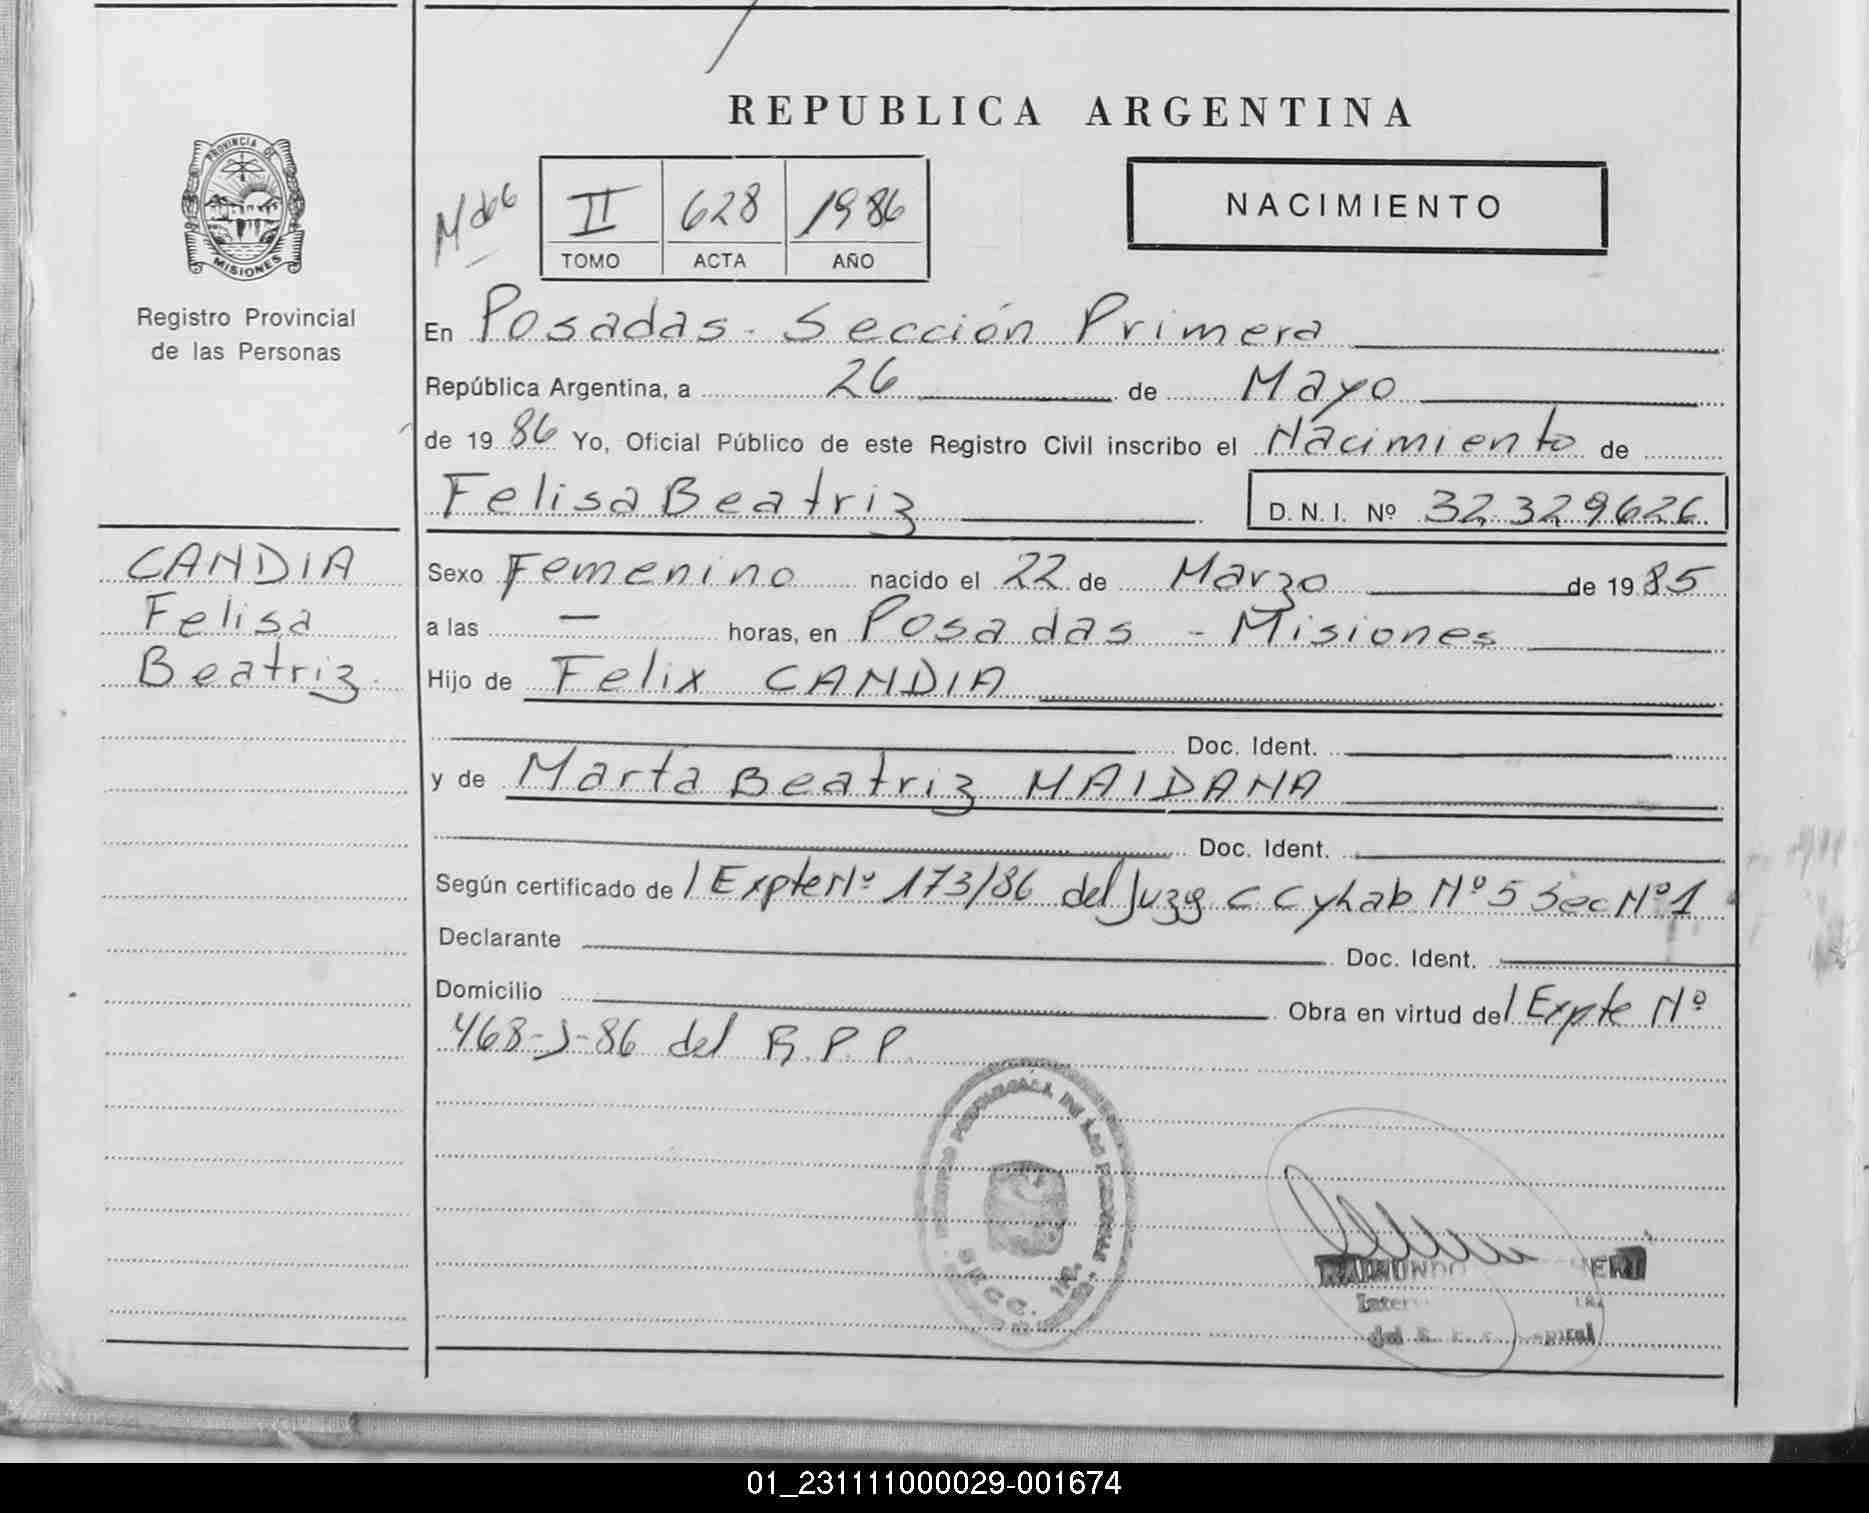 REPUBLICA ARGENTINA
PROVINCIA DE
MISIONES
Registro Provincial
de las Personas
II 628 1986
TOMO ACTA AÑO
NACIMIENTO
En Posadas - Sección Primera
República Argentina, a 26 de Mayo
de 1986 Yo, Oficial Público de este Registro Civil inscribo el Nacimiento de
Felisa Beatriz D.N.I. Nº 32.329.626
CANDIA
Felisa
Beatriz
Sexo Femenino nacido el 22 de Marzo de 1985
a las — horas, en Posadas - Misiones
Hijo de Felix CANDIA
Doc. Ident.
y de Marta Beatriz MAIDANA
Doc. Ident.
Según certificado de l Expte Nº 173/86 del Juzg C C y Lab Nº 5 Sec Nº 1
Declarante Doc. Ident.
Domicilio Obra en virtud del Expte Nº
468-J-86 del R.P.P.
SECC. 1ra.
RAIMUNDO
01_231111000029-001674